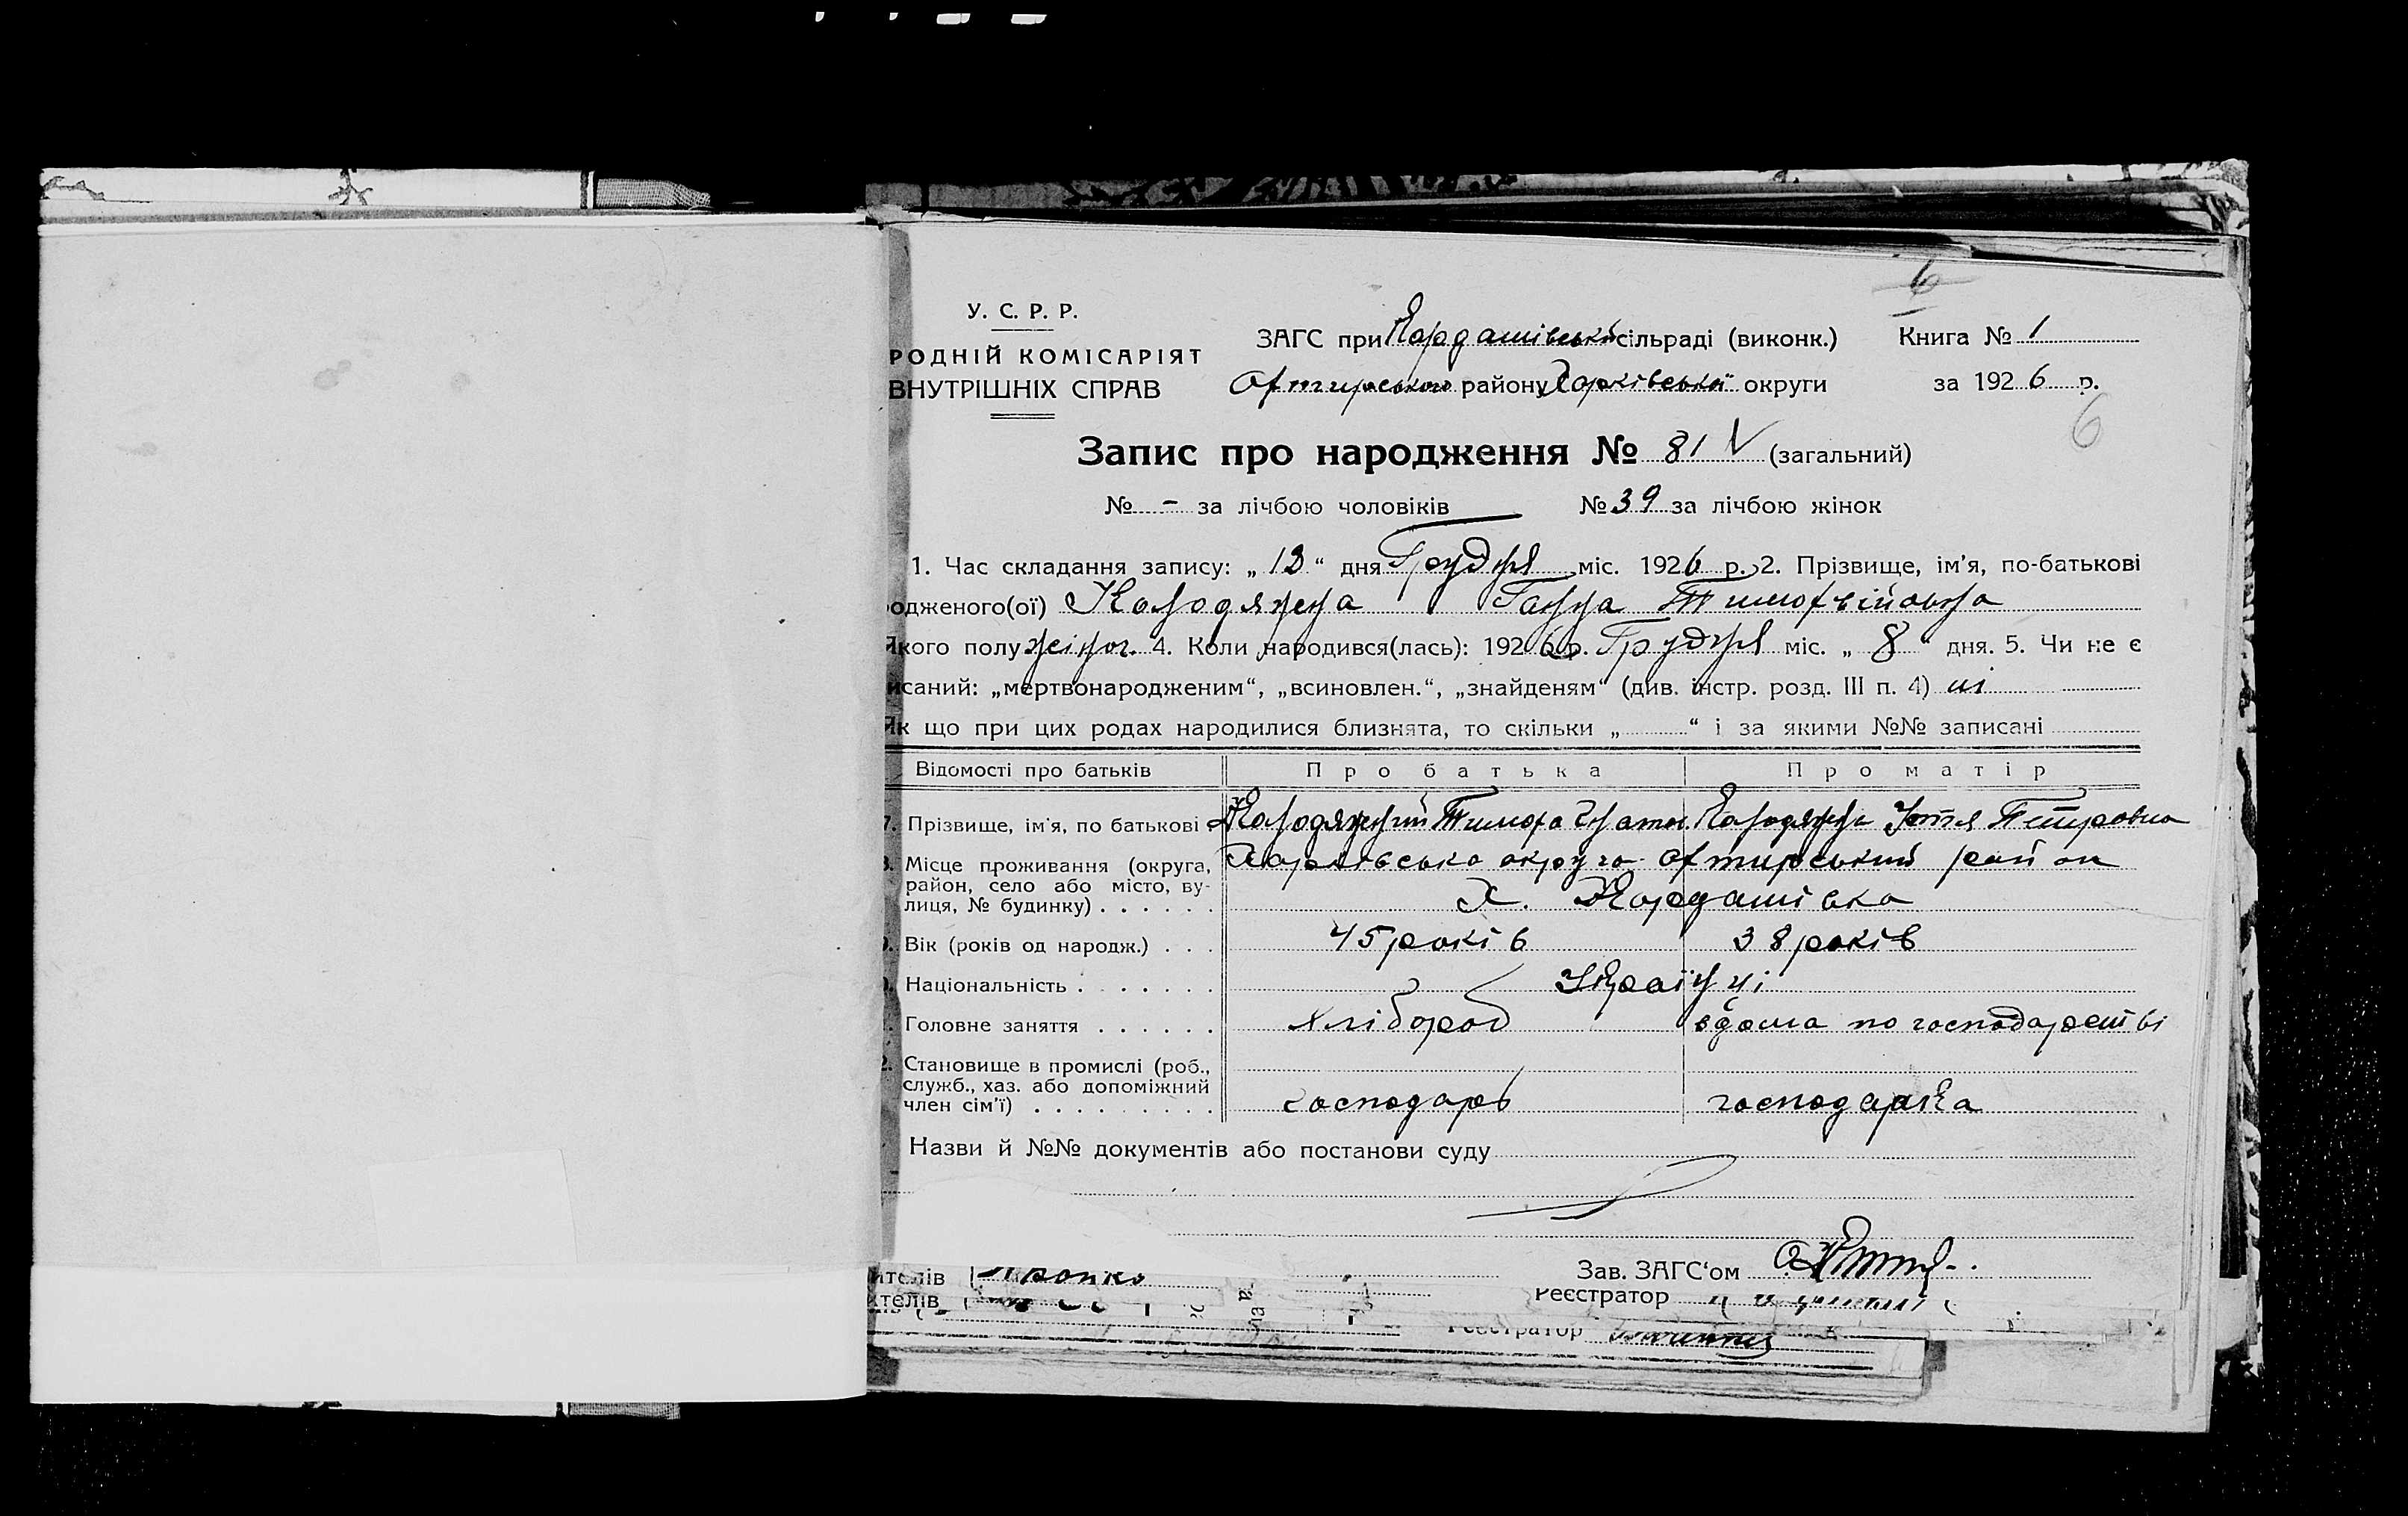 6
У. С. Р. Р.
РОДНІЙ КОМІСАРІЯТ
ВНУТРІШНІХ СПРАВ
ЗАГС при Кардашівській сільраді (виконк.) Книга № 1
Охтирського району Харківської округи за 1926 р.
6
Запис про народження № 81 V (загальний)
№ - за лічбою чоловіків № 39 за лічбою жінок
1. Час складання запису: „ 13 “ дня Грудня міс. 1926 р. 2. Прізвище, ім'я, по-батькові
одженого(ої) Колодяжна Ганна Тимофѣйовна
Якого полу жіноч. 4. Коли народився(лась): 1926 р. Грудня міс. „ 8 “ дня. 5. Чи не є
исаний: „мертвонародженим“, „всиновлен.“, „знайденям“ (див. інстр. розд. III п. 4) ні
Як що при цих родах народилися близнята, то скільки „ “ і за якими №№ записані
Відомості про батьків Про батька Про матір
7. Прізвище, ім'я, по батькові Колодяжний Тимофа Колодяжна Устя Петровна
8. Місце проживання (округа, район, село або місто, вулиця, № будинку) Харківська округа Охтирський район
Х. Кардашівка
Вік (років од народж.) 45 років 38 років
Національність Українці
Головне заняття хлібороб вдома по господарстві
2. Становище в промислі (роб.,
служб., хаз. або допоміжний
член сім'ї) господарь господарка
Назви й №№ документів або постанови суду
ителів Зав. ЗАГС'ом
ителів Реєстратор
Реєстратор